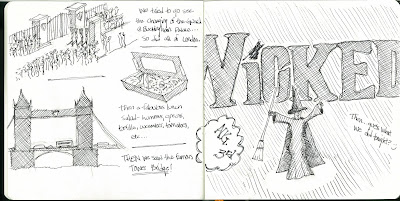 We tried to go see
the Changing of the Guard
@ Buckingham Palace...
So did all of London.
Then a fabulous lunch
salad - hummus, greens,
tortilla, cucumber, tomatoes,
etc...
THEN we saw the famous
Tower Bridge!
WICKED
Then... guess what
we did tonight? :)